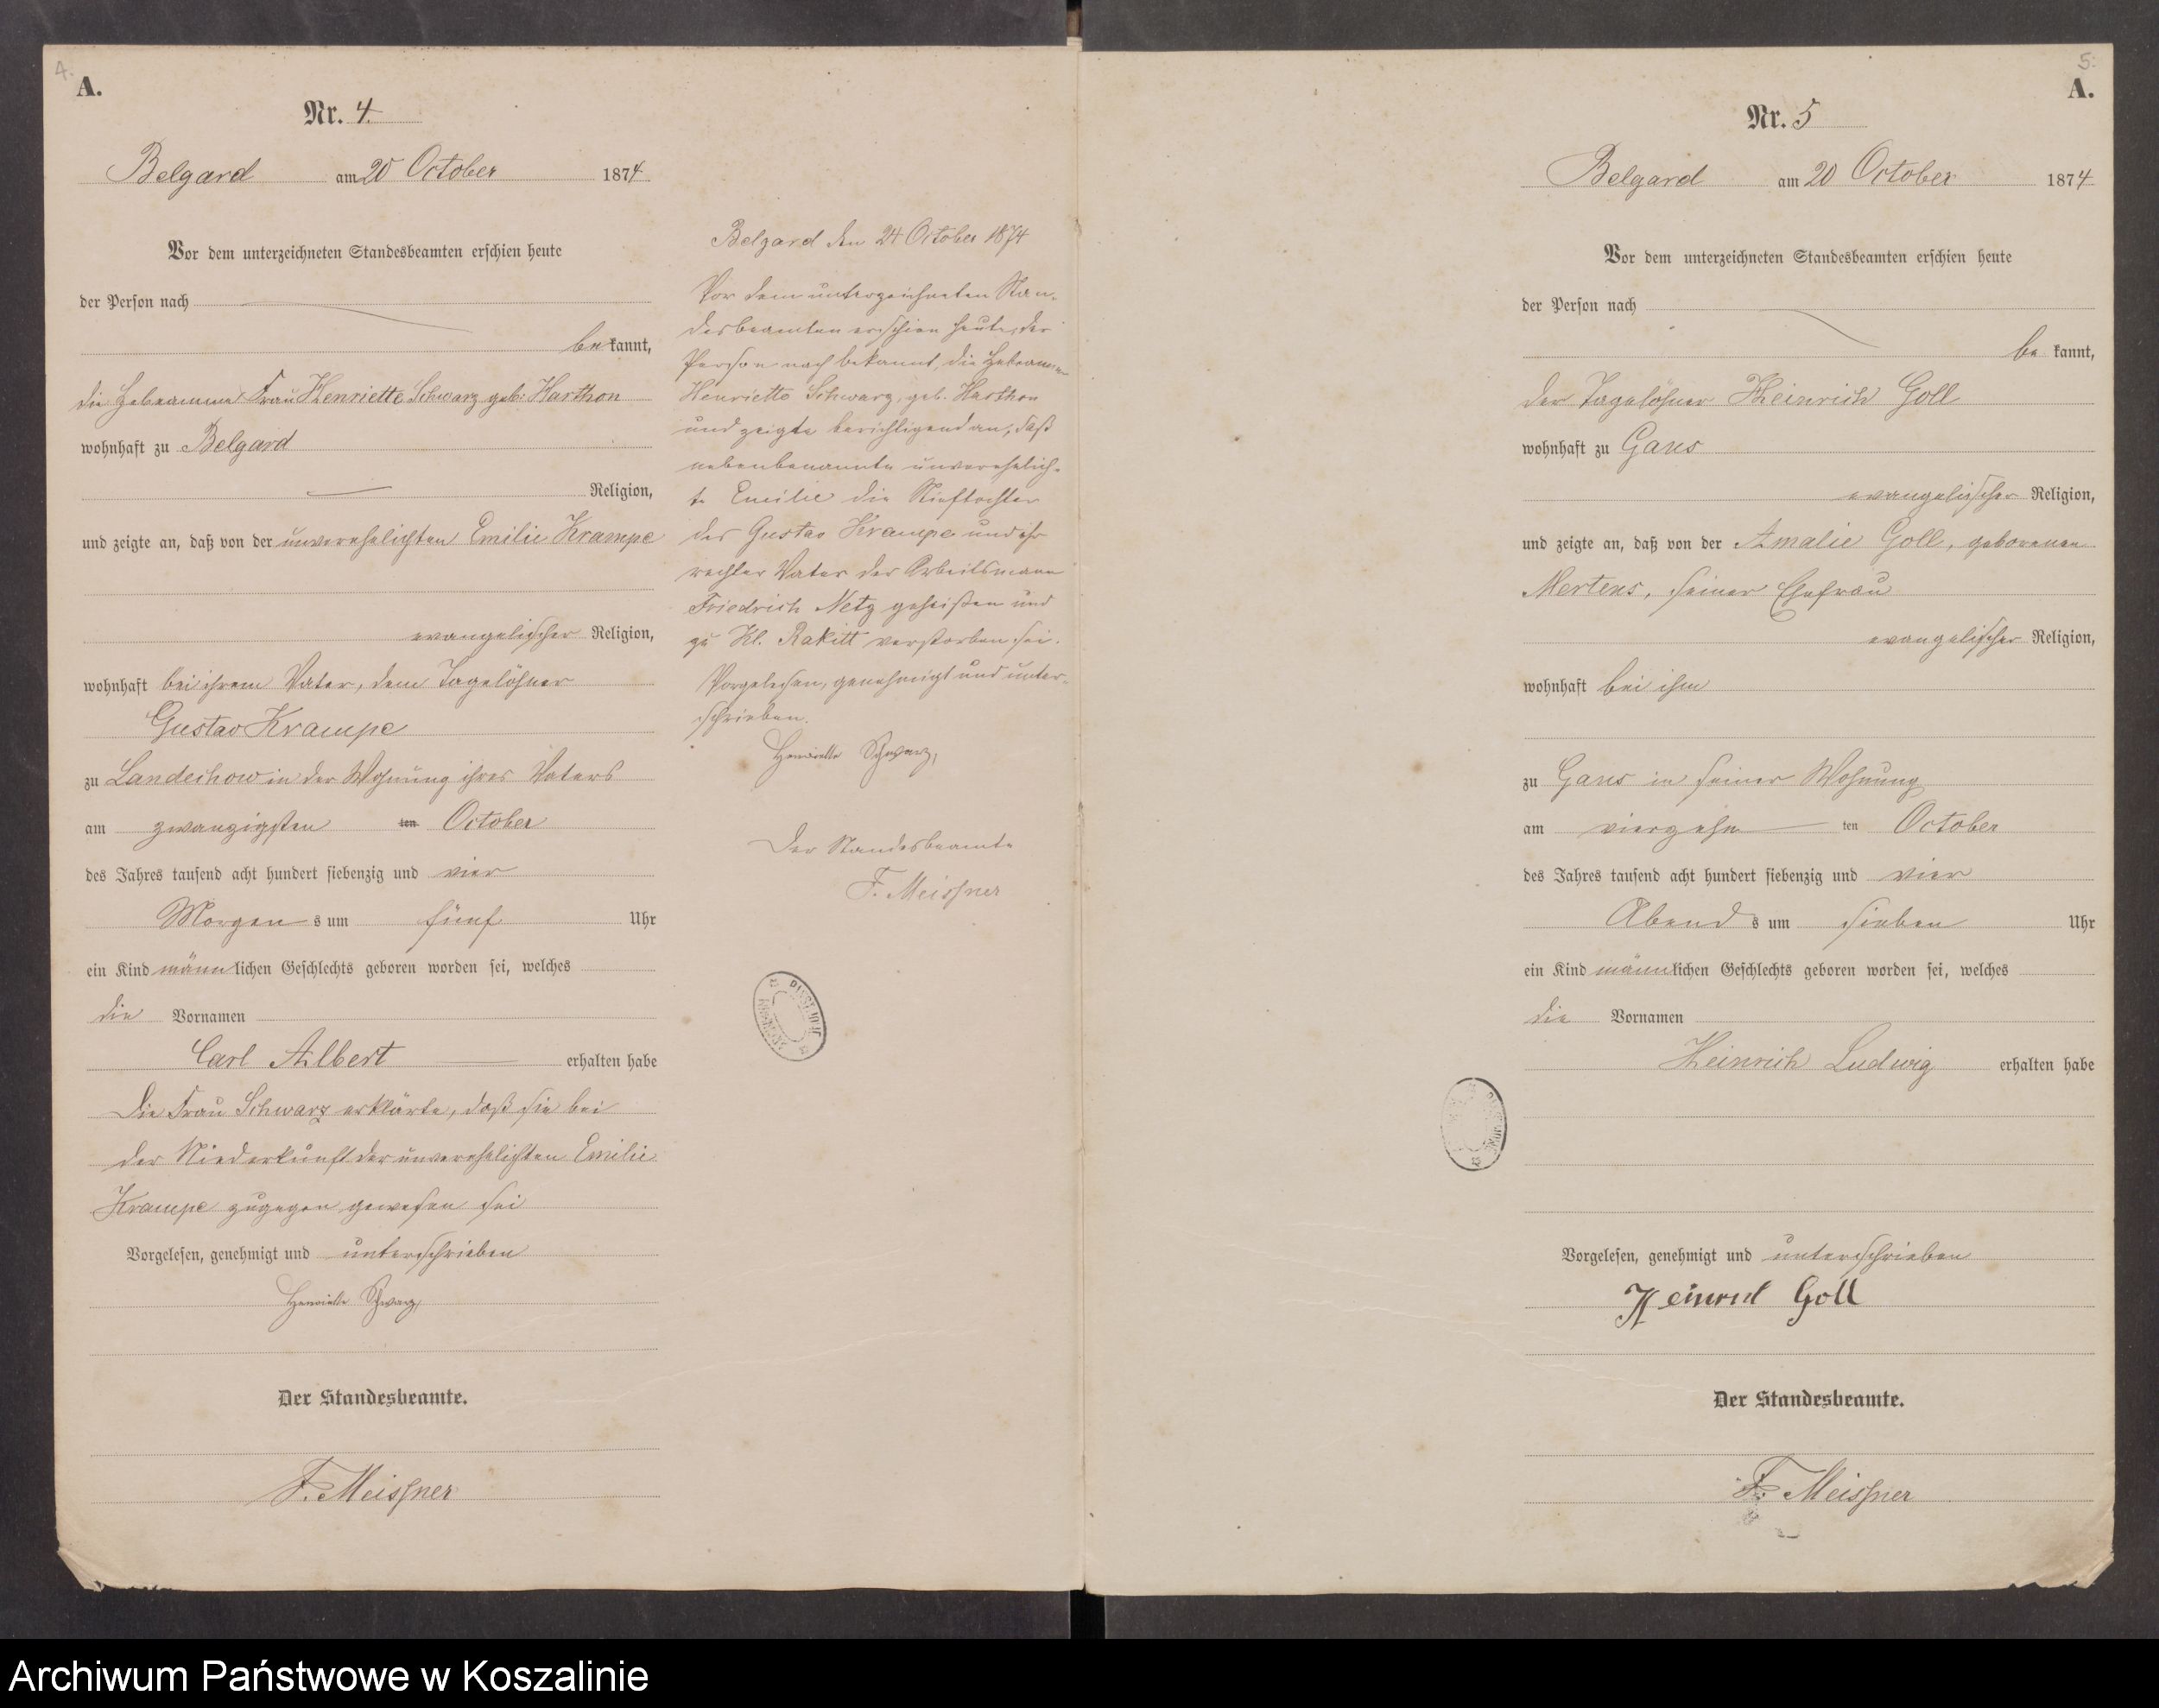 4.
A.
Nr. 4.
Belgard am 20 October 1874
Vor dem unterzeichneten Standesbeamten erschien heute
der Person nach
be kannt,
die Hebeamme Frau Henriette Schwarz geb. Harthon
wohnhaft zu Belgard
Religion,
und zeigte an, daß von der unverehelichten Emilie Krampe
evangelischer Religion,
wohnhaft bei ihrem Vater, dem Tagelöhner
Gustav Krampe
zu Landechow in der Wohnung ihres Vaters
am zwanzigsten ten October
des Jahres tausend acht hundert siebenzig und vier
Morgen s um fünf Uhr
ein Kind männlichen Geschlechts geboren worden sei, welches
die Vornamen
Carl Albert erhalten habe
Die Frau Schwarz erklärte, daß sie bei
der Niederkunft der unverehelichten Emilie
Krampe zugegen gewesen sei
Vorgelesen, genehmigt und unterschrieben
Henriette Schwarz,
Der Standesbeamte.
F. Meissner
Belgard den 24 October 1874
Vor dem unterzeichneten Stan-
desbeamten erschien heute, der
Person nach bekannt, die Hebeamme
Henriette Schwarz, geb. Harthon
und zeigte berichtigend an, daß
nebenbenannte unverehelich-
te Emilie die Stieftochter
des Gustav Krampe und ihr
rechter Vater der Arbeitsmann
Friedrich Netz geheißen und
zu Kl. Rakitt verstorben sei.
Vorgelesen, genehmigt und unter-
schrieben.
Henriette Schwarz,
Der Standesbeamte
F. Meissner
5.
A.
Nr. 5
Belgard am 20 October 1874
Vor dem unterzeichneten Standesbeamten erschien heute
der Person nach
be kannt,
der Tagelöhner Heinrich Goll
wohnhaft zu Gans
evangelischer Religion,
und zeigte an, daß von der Amalie Goll, geborenen
Mertens, seiner Ehefrau
evangelischer Religion,
wohnhaft bei ihm
zu Gans in seiner Wohnung
am vierzehn ten October
des Jahres tausend acht hundert siebenzig und vier
Abend s um sieben Uhr
ein Kind männlichen Geschlechts geboren worden sei, welches
die Vornamen
Heinrich Ludwig erhalten habe
Vorgelesen, genehmigt und unterschrieben
Heinrich Goll
Der Standesbeamte.
F. Meissner
Archiwum Państwowe w Koszalinie